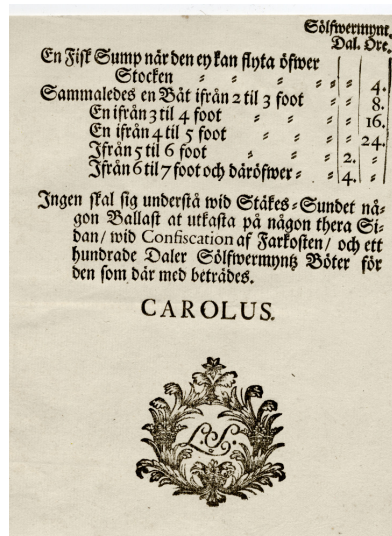 Sölfwermynt.
Dal. Öre.
En Fisk Sump när den ey kan flyta öfwer
Stocken " " " " " 4.
Sammaledes en Båt ifrån 2 til 3 foot " " 8.
En ifrån 3 til 4 foot " " " 16.
En ifrån 4 til 5 foot " " " 24.
Ifrån 5 til 6 foot " " 2. "
Ifrån 6 til 7 foot och däröfwer " " 4. "
Ingen skal sig understå wid Stäkes-Sundet nå-
gon Ballast at utkasta på någon thera Si-
dan/ wid Confiscation af Farkosten/ och ett
hundrade Daler Sölfwermyntz Böter för
den som där med beträdes.
CAROLUS.
L.S.